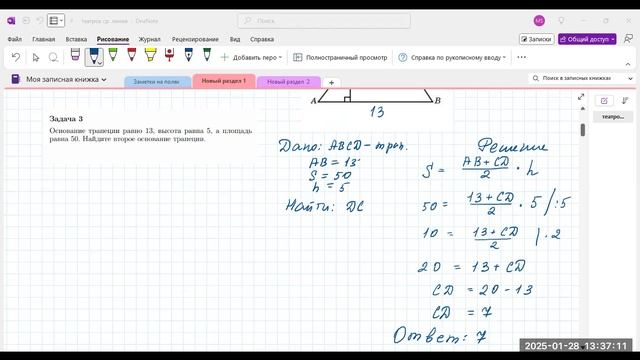 театров ср. линия - OneNote
Поиск
MS
Файл
Главная
Вставка
Рисование
Журнал
Рецензирование
Вид
Справка
Записки
Общий доступ
Добавить перо
Полноэкранный просмотр
Справка по рукописному вводу
Моя записная книжка
Заметки на полях
Новый раздел 1
Новый раздел 2
+
Поиск в записных книжках
театро...
A
B
13
Задача 3
Основание трапеции равно 13, высота равна 5, а площадь
равна 50. Найдите второе основание трапеции.
Дано: ABCD - трап.
AB = 13
S = 50
h = 5
Найти: DC
Решение
S = AB + CD / 2 · h
50 = 13 + CD / 2 · 5 / :5
10 = 13 + CD / 2 | · 2
20 = 13 + CD
CD = 20 - 13
CD = 7
Ответ: 7
2025-01-28 13:37:11